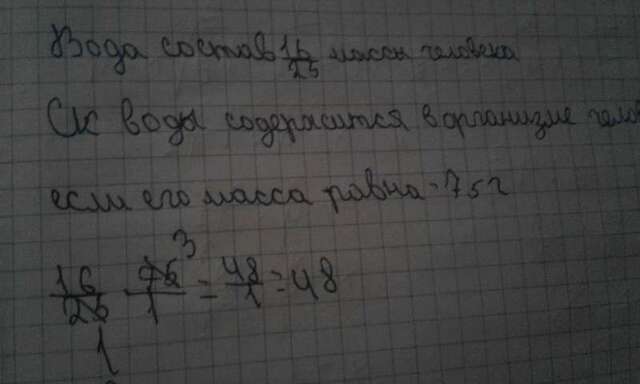 Вода состав 16/25 массы человека
Ск воды содержится в организме чело
если его масса равна 75г
16/25 · 75/1 3 = 48/1 = 48
1